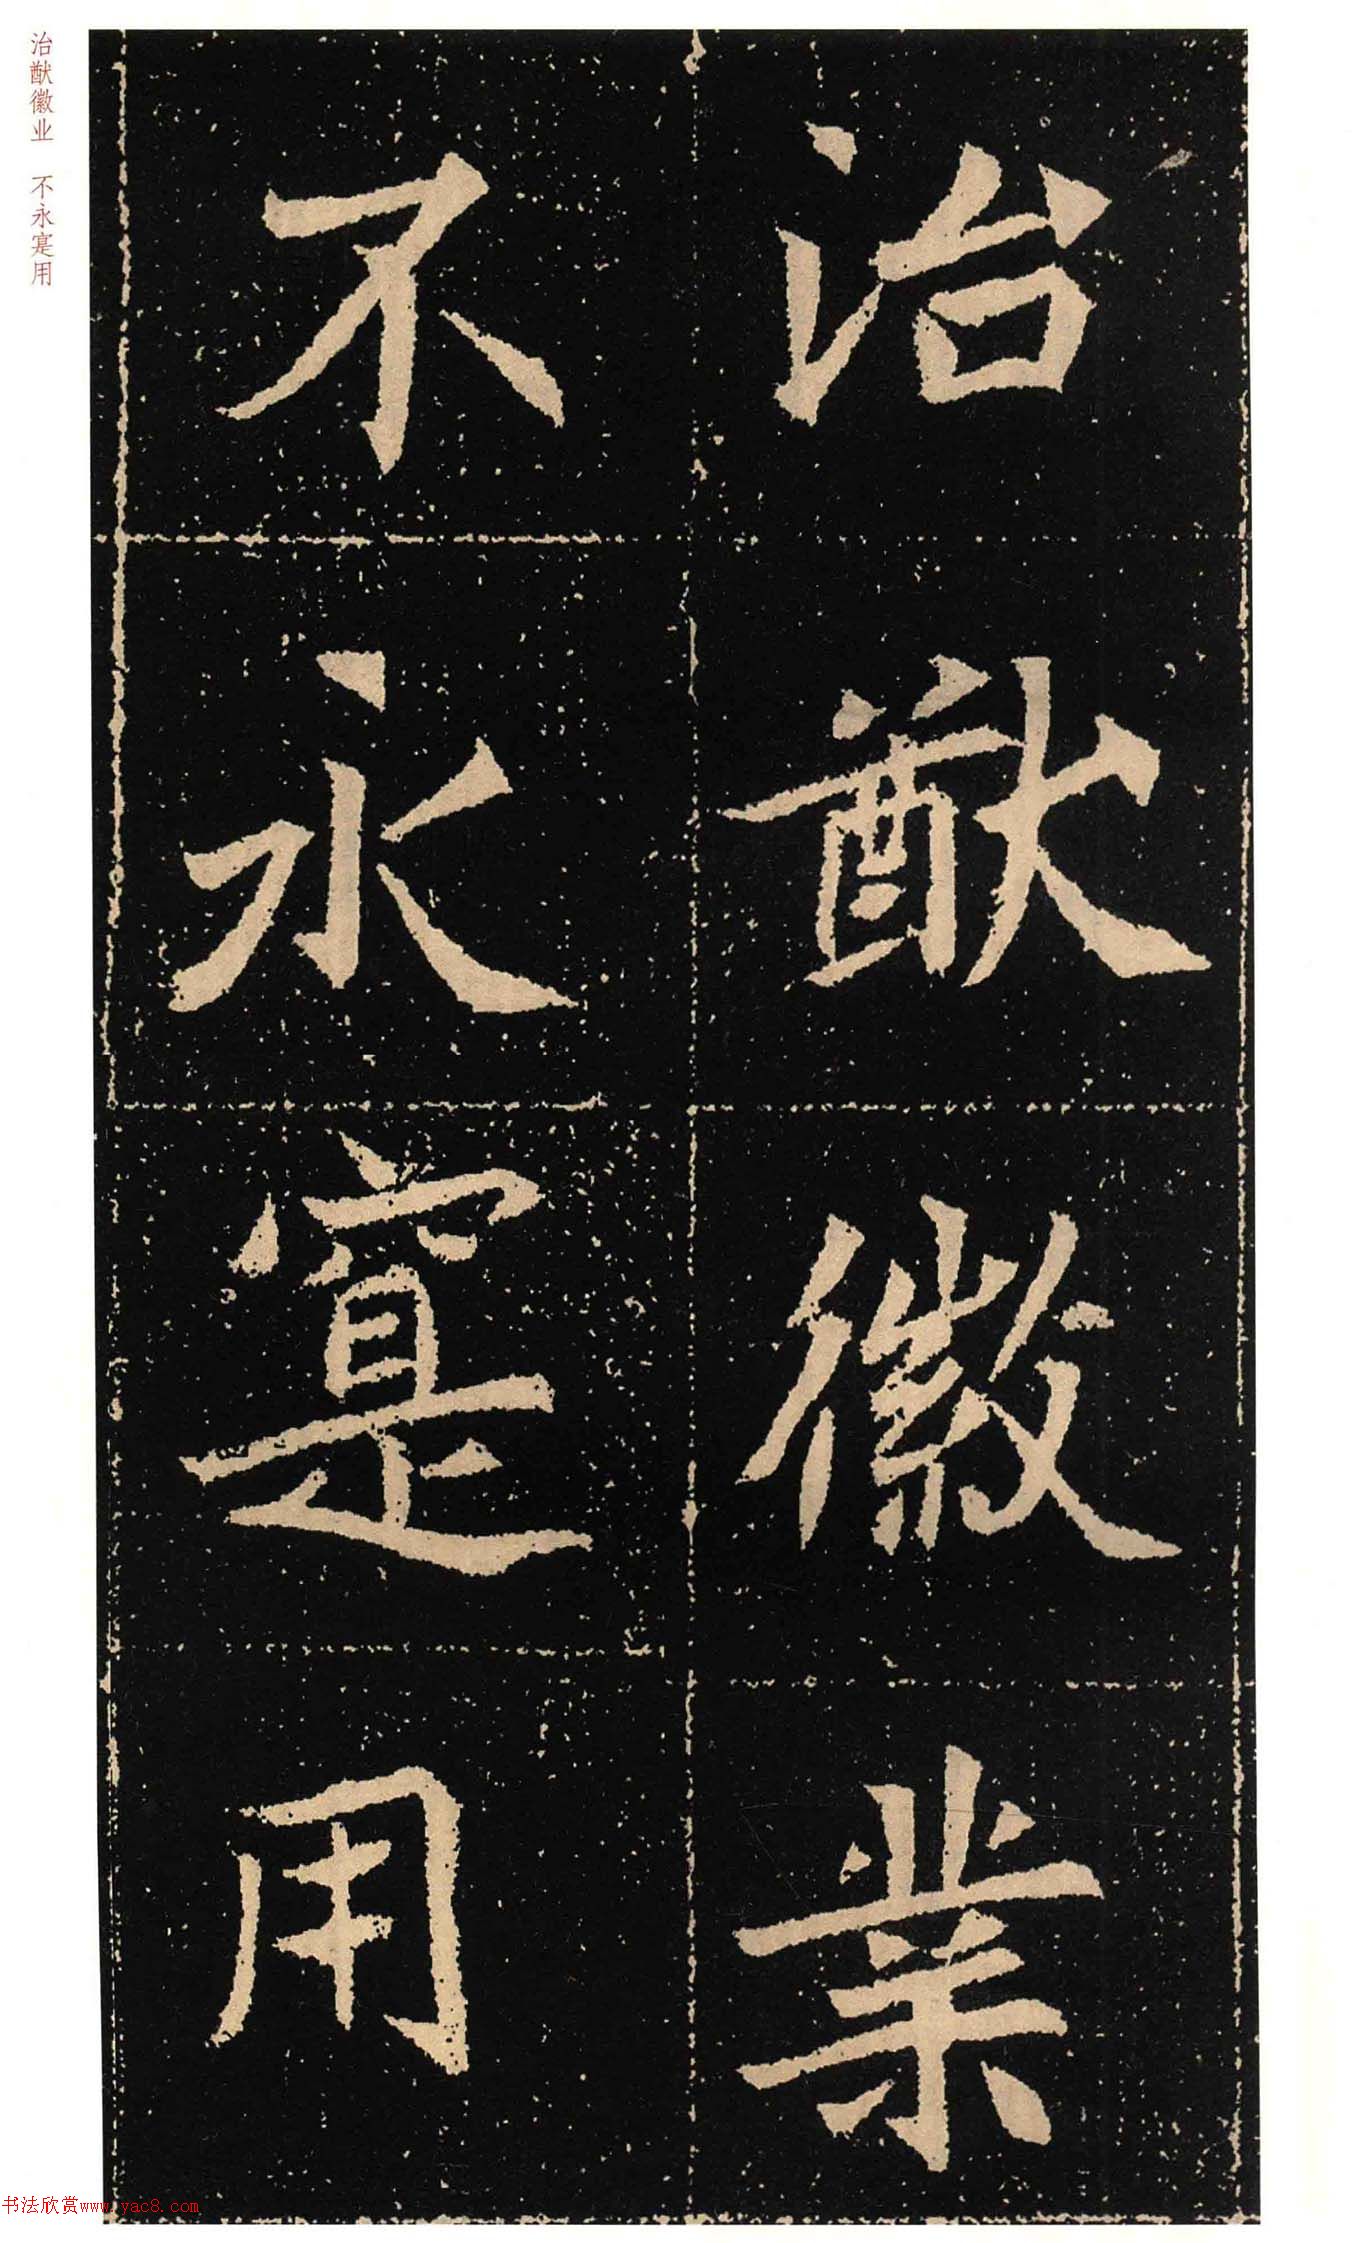 治猷徽業
不永寔用
治猷徽业 不永寔用
书法欣赏www.yac8.com